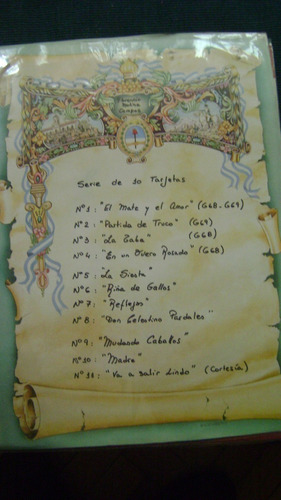 Molina
Campos
Serie de 10 Tarjetas
Nº1: "El Mate y el Amor" (G68-G69)
Nº2: "Partida de Truco" (G69)
Nº3: "La Taba" (G68)
Nº4: "En un Overo Rosado" (G68)
Nº5: "La Siesta"
Nº6: "Riña de Gallos"
Nº7: "Reflejos"
Nº8: "Don Celestino Pardales"
Nº9: "Mudando Caballos"
Nº10: "Madre"
Nº11: "Va a Salir Lindo" (Cortesía)